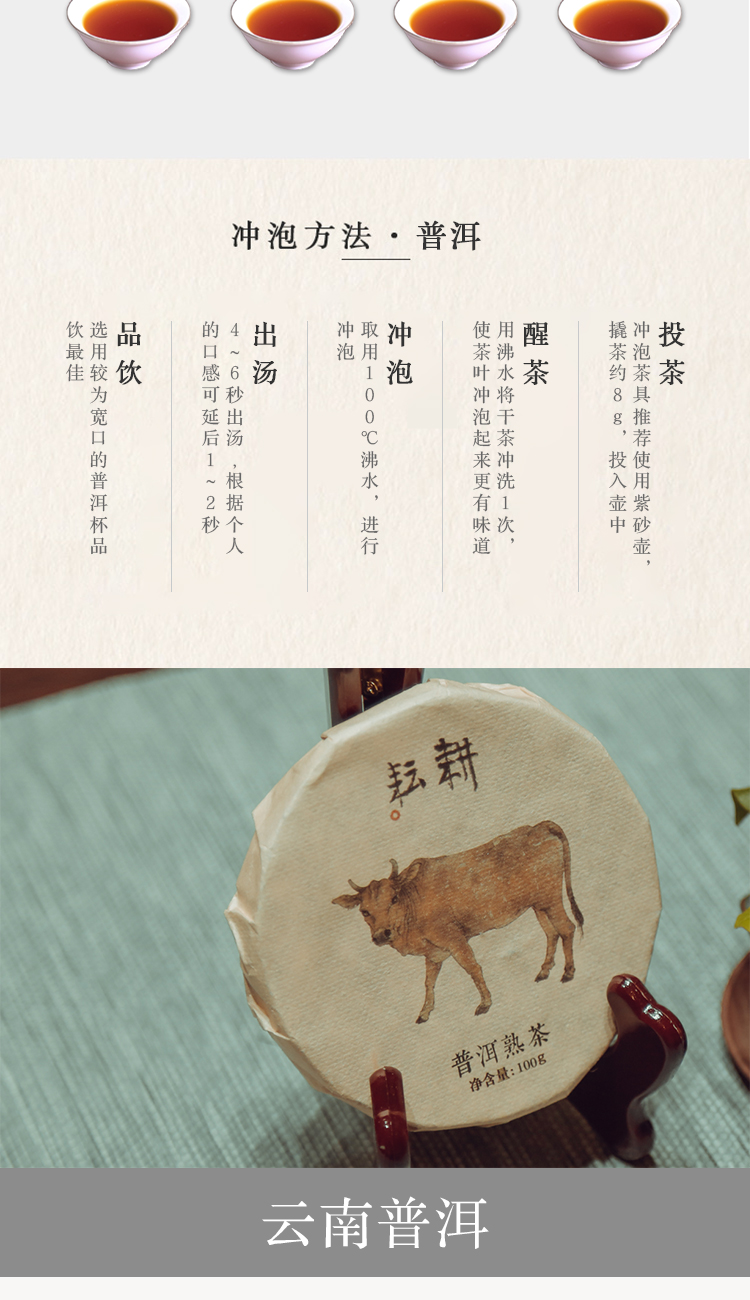 冲泡方法·普洱
投茶
冲泡茶具推荐使用紫砂壶，
撬茶约8g，投入壶中
醒茶
用沸水将干茶冲洗1次，
使茶叶冲泡起来更有味道
冲泡
取用100℃沸水，进行
冲泡
出汤
4~6秒出汤，根据个人
的口感可延后1~2秒
品饮
选用较为宽口的普洱杯品
饮最佳
耘耕
普洱熟茶
净含量:100g
云南普洱